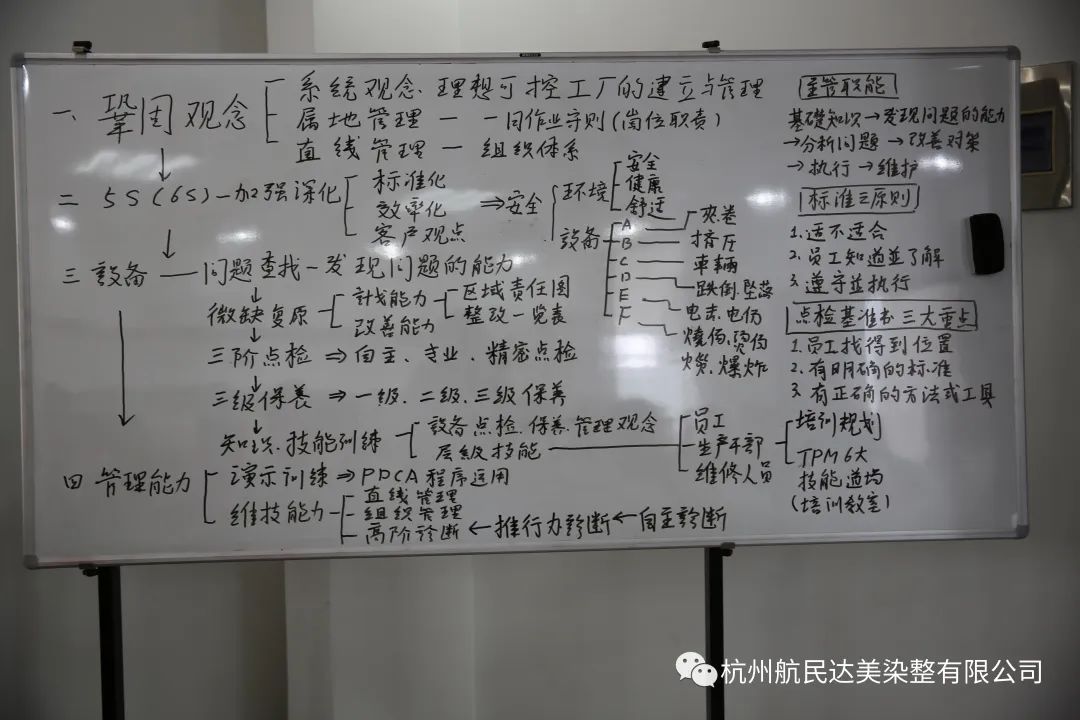 一、巩固观念
系统观念、理想可控工厂的建立与管理
属地管理 — 一同作业守则(岗位职责)
直线管理 — 组织体系
↓
二 5S(6S)—加强深化
标准化
效率化
客户观点
⇒安全
环境
安全
健康
舒适
設备
A — 夹.卷
B — 挤压
C — 車辆
D — 跌倒.坠落
E — 电击.电伤
F — 燒伤、烫伤
火災、爆炸
↓
三 設备 — 问题查找—发现问题的能力
↓
微缺复原
计划能力
区域责任图
整改一览表
改善能力
↓
三阶点检 ⇒ 自主、专业、精密点检
↓
三级保養 ⇒ 一级、二级、三级保养
↓
知识、技能训練
設备点检.保养.管理观念
层級技能
员工
生产干部
维修人员
培训规划
TPM6大
技能道场
(培训教室)
四 管理能力
演示训練 ⇒ PDCA程序运用
维技能力
直线管理
组织管理
高阶诊断 ← 推行办診断 ← 自主診断
主管职能
基礎知识→发现问题的能力
→分析问题 → 改善对策
→执行 → 维护
标准三原则
1.适不适合
2.员工知道並了解
3.遵守並执行
点检基准书三大重点
1.员工找得到位置
2.有明确的标准
3.有正确的方法或工具
杭州航民达美染整有限公司